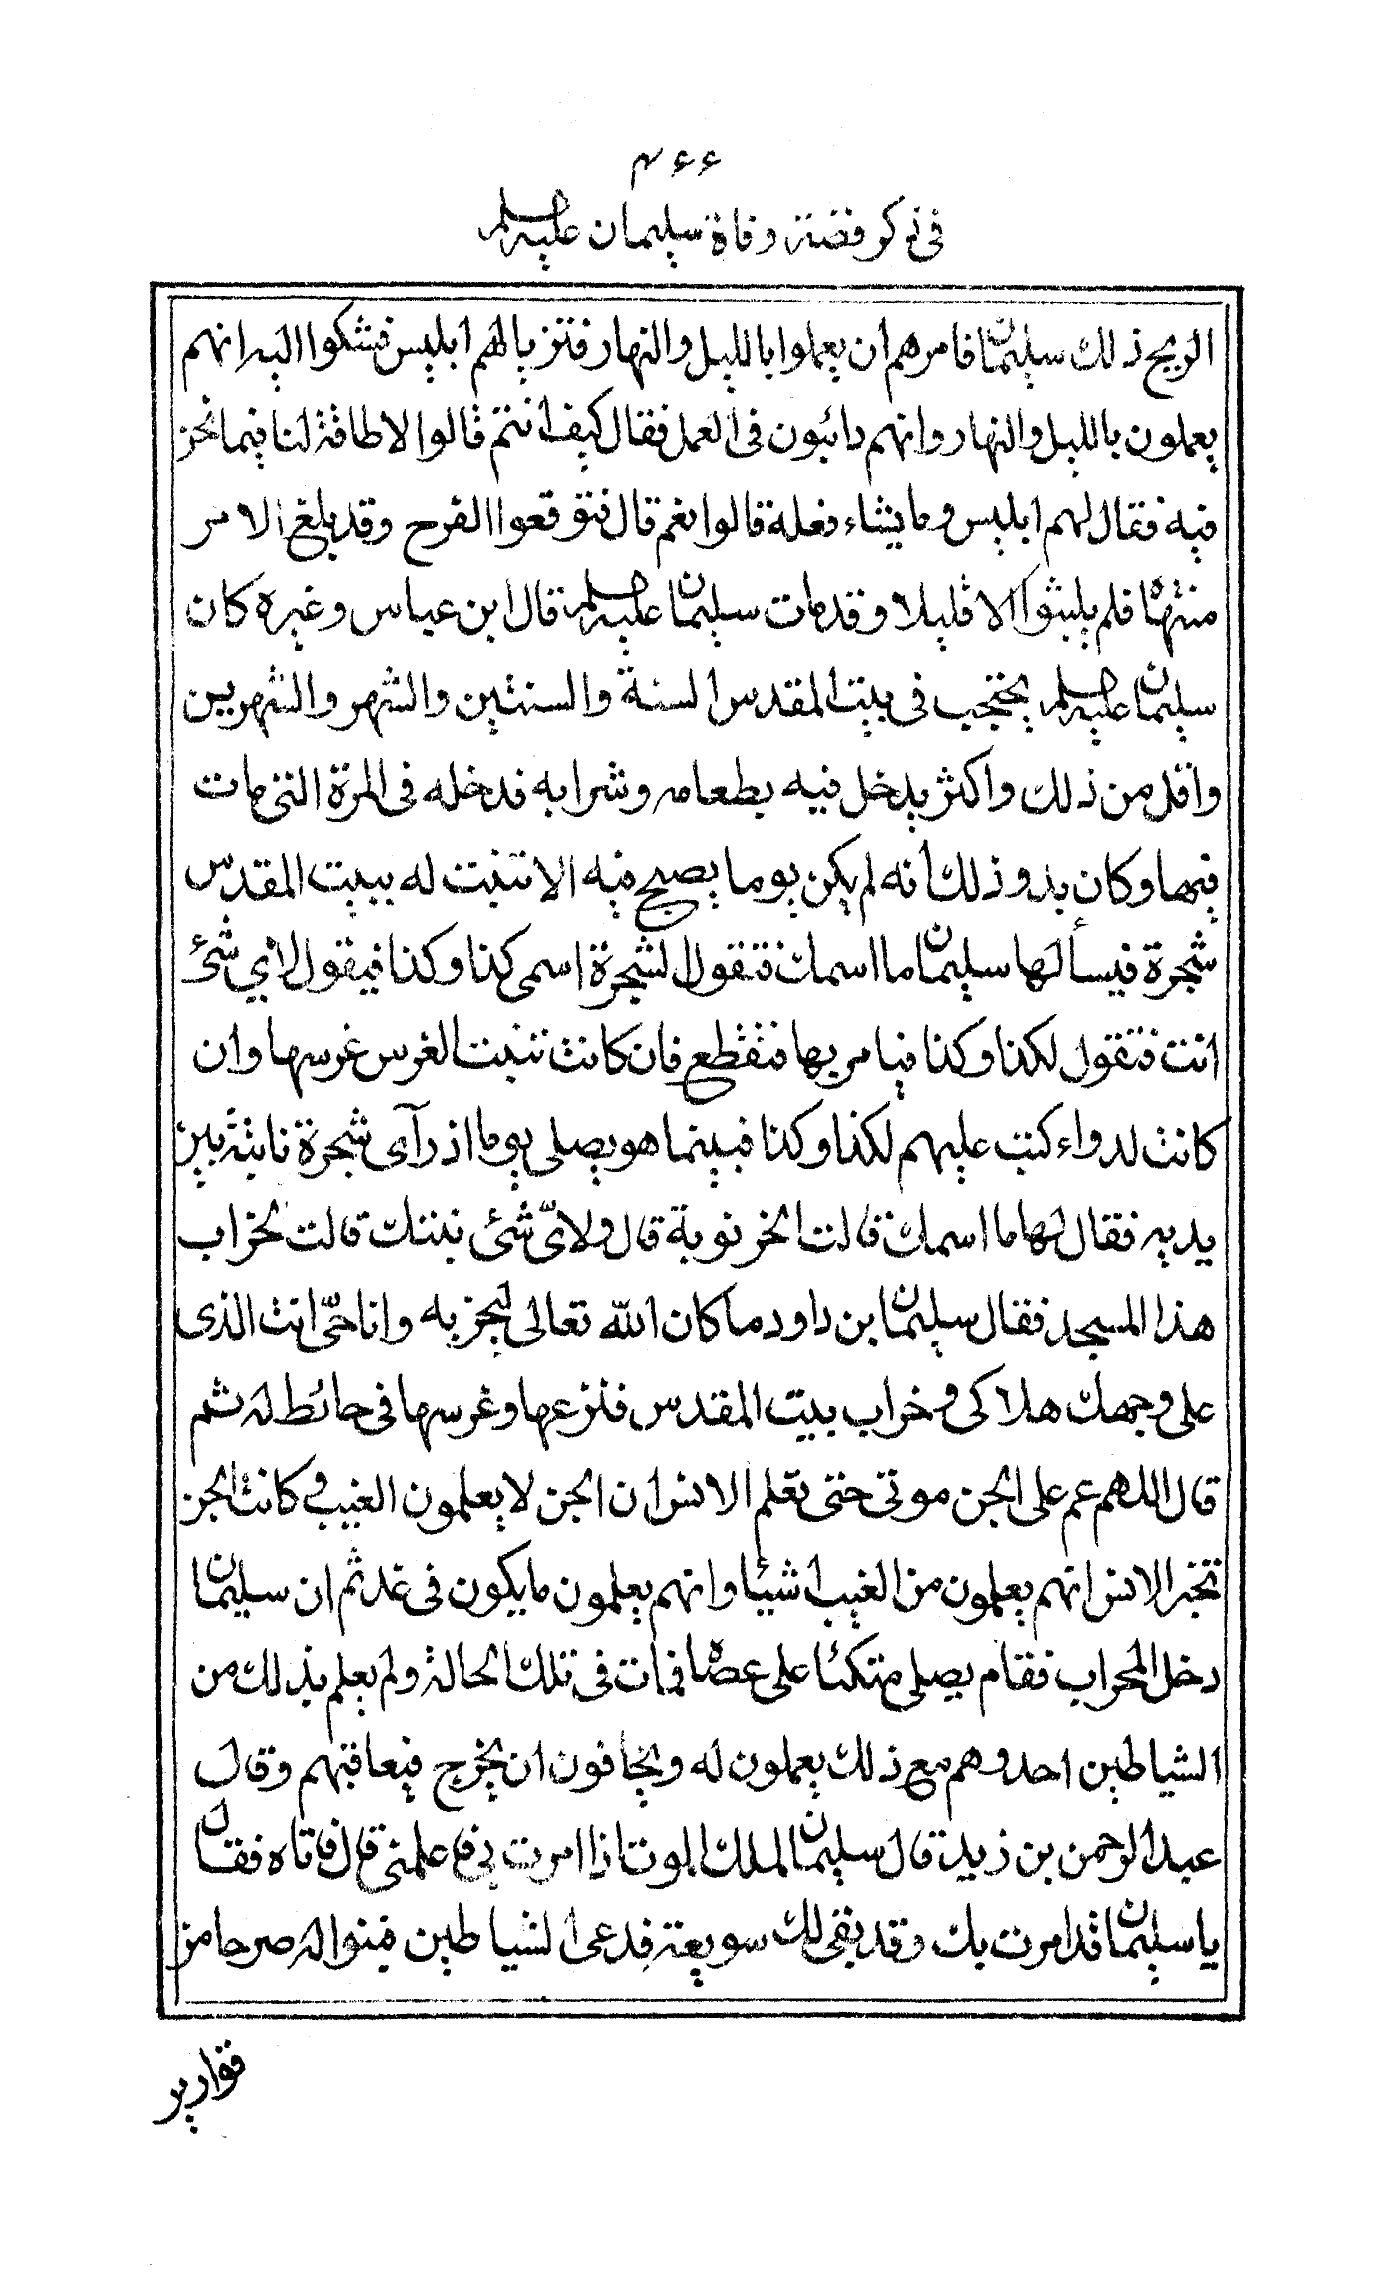 ٤٦٦
فى ذكر قصة وفاة سليمان عليه السلم
الريح ذلك سليمان فامرهم ان يعملوا بالليل والنهار فتزيا لهم ابليس فشكوا اليه انهم
يعملون بالليل والنهار وانهم دائبون فى العمل فقال كيف انتم قالوا لا طاقة لنا فيما نحن
فيه فقال لهم ابليس وما يشاء فعله قالوا نعم قال فتوقعوا الفرج وقد بلغ الامر
منتهاه فلم يلبثوا الا قليلا وقد مات سليمان عليه السلم قال ابن عباس وغيره كان
سليمان عليه السلم يحتجب فى بيت المقدس السنة والسنتين والشهر والشهرين
واقل من ذلك واكثر يدخل فيه بطعامه وشرابه فدخله فى المرة التى مات
فيها وكان بدو ذلك أنه لم يكن يوما يصبح فيه الا تنبت له ببيت المقدس
شجرة فيسألها سليمان ما اسمك فتقول الشجرة اسمى كذا وكذا فيقول لأي شئ
انت فتقول لكذا وكذا فيامر بها فتقطع فان كانت تنبت الغرس غرسها وان
كانت لدواء كتب عليهم لكذا وكذا فبينما هو يصلى يوما اذ رآى شجرة نابتة بين
يديه فقال لها ما اسمك قالت الخرنوبة قال ولاىّ شئى نبتك قالت لخراب
هذا المسجد فقال سليمان ابن داود ما كان الله تعالى ليخربه وانا حىّ انت الذى
على وجهك هلاكى وخراب بيت المقدس فنزعها وغرسها فى حائط له ثم
قال اللهم عم على الجن موتى حتى تعلم الانس ان الجن لا يعلمون الغيب وكانت الجن
تخبر الانس انهم يعلمون من الغيب اشيئا وانهم يعلمون ما يكون فى غد ثم ان سليمان
دخل المحراب فقام يصلى متكئا على عصاه فمات فى تلك الحالة ولم يعلم بذلك من
الشياطين احد وهم مع ذلك يعملون له ويخافون ان يخرج فيعاقبهم وقال
عبد الرحمن بن زيد قال سليمان لملك الموت اذا امرت بى فاعلمنى قال فاتاه فقال
يا سليمان قد امرت بك وقد بقى لك سويعة فدعى الشياطين فبنوا له صرحا من
قوارير